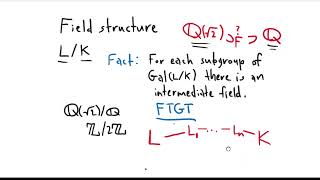 Field structure
L/K
ℚ(√2) ⊃ ? F ⊃ ℚ
Fact: For each subgroup of
Gal(L/K) there is an
intermediate field.
ℚ(√2)/ℚ
ℤ/2ℤ
FTGT
L — L₁ - ··· - Lₙ — K